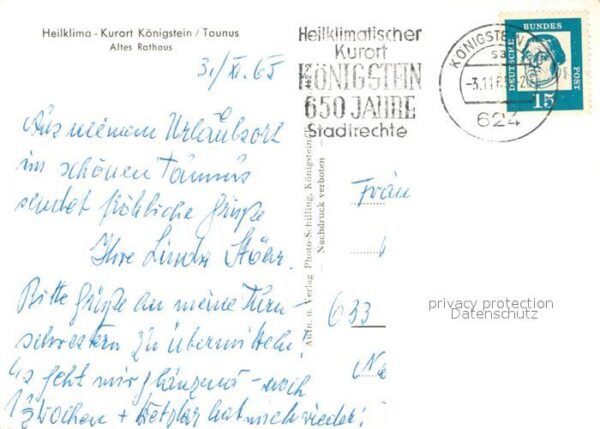 Heilklima - Kurort Königstein / Taunus
Altes Rathaus
3./XI. 65
Aus meinem Urlaubsort
im schönen Taunus
sendet fröhliche Grüße
Ihre Linda
Bitte Grüße an meine Kern-
schwestern zu übermitteln!
Es geht mir glänzend - noch
2 Wochen + Wetzlar hat mich wieder!
Aufn. u. Verlag Photo-Schilling, Königstein
Nachdruck verboten
Heilklimatischer
Kurort
KÖNIGSTEIN
650 JAHRE
Stadtrechte
KÖNIGSTEIN
-3.11.6
624
DEUTSCHE BUNDES POST
15
Frau
633
privacy protection
Datenschutz